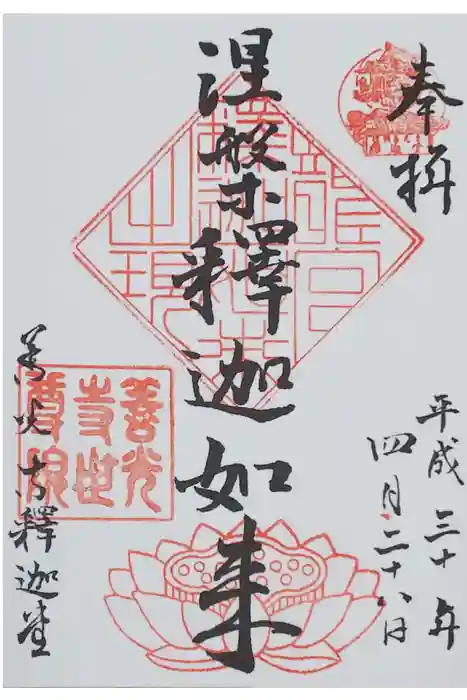 奉拝
平成三十年
四月二十八日
涅槃釋迦如来
善光寺釋迦堂
善光
寺世
尊院